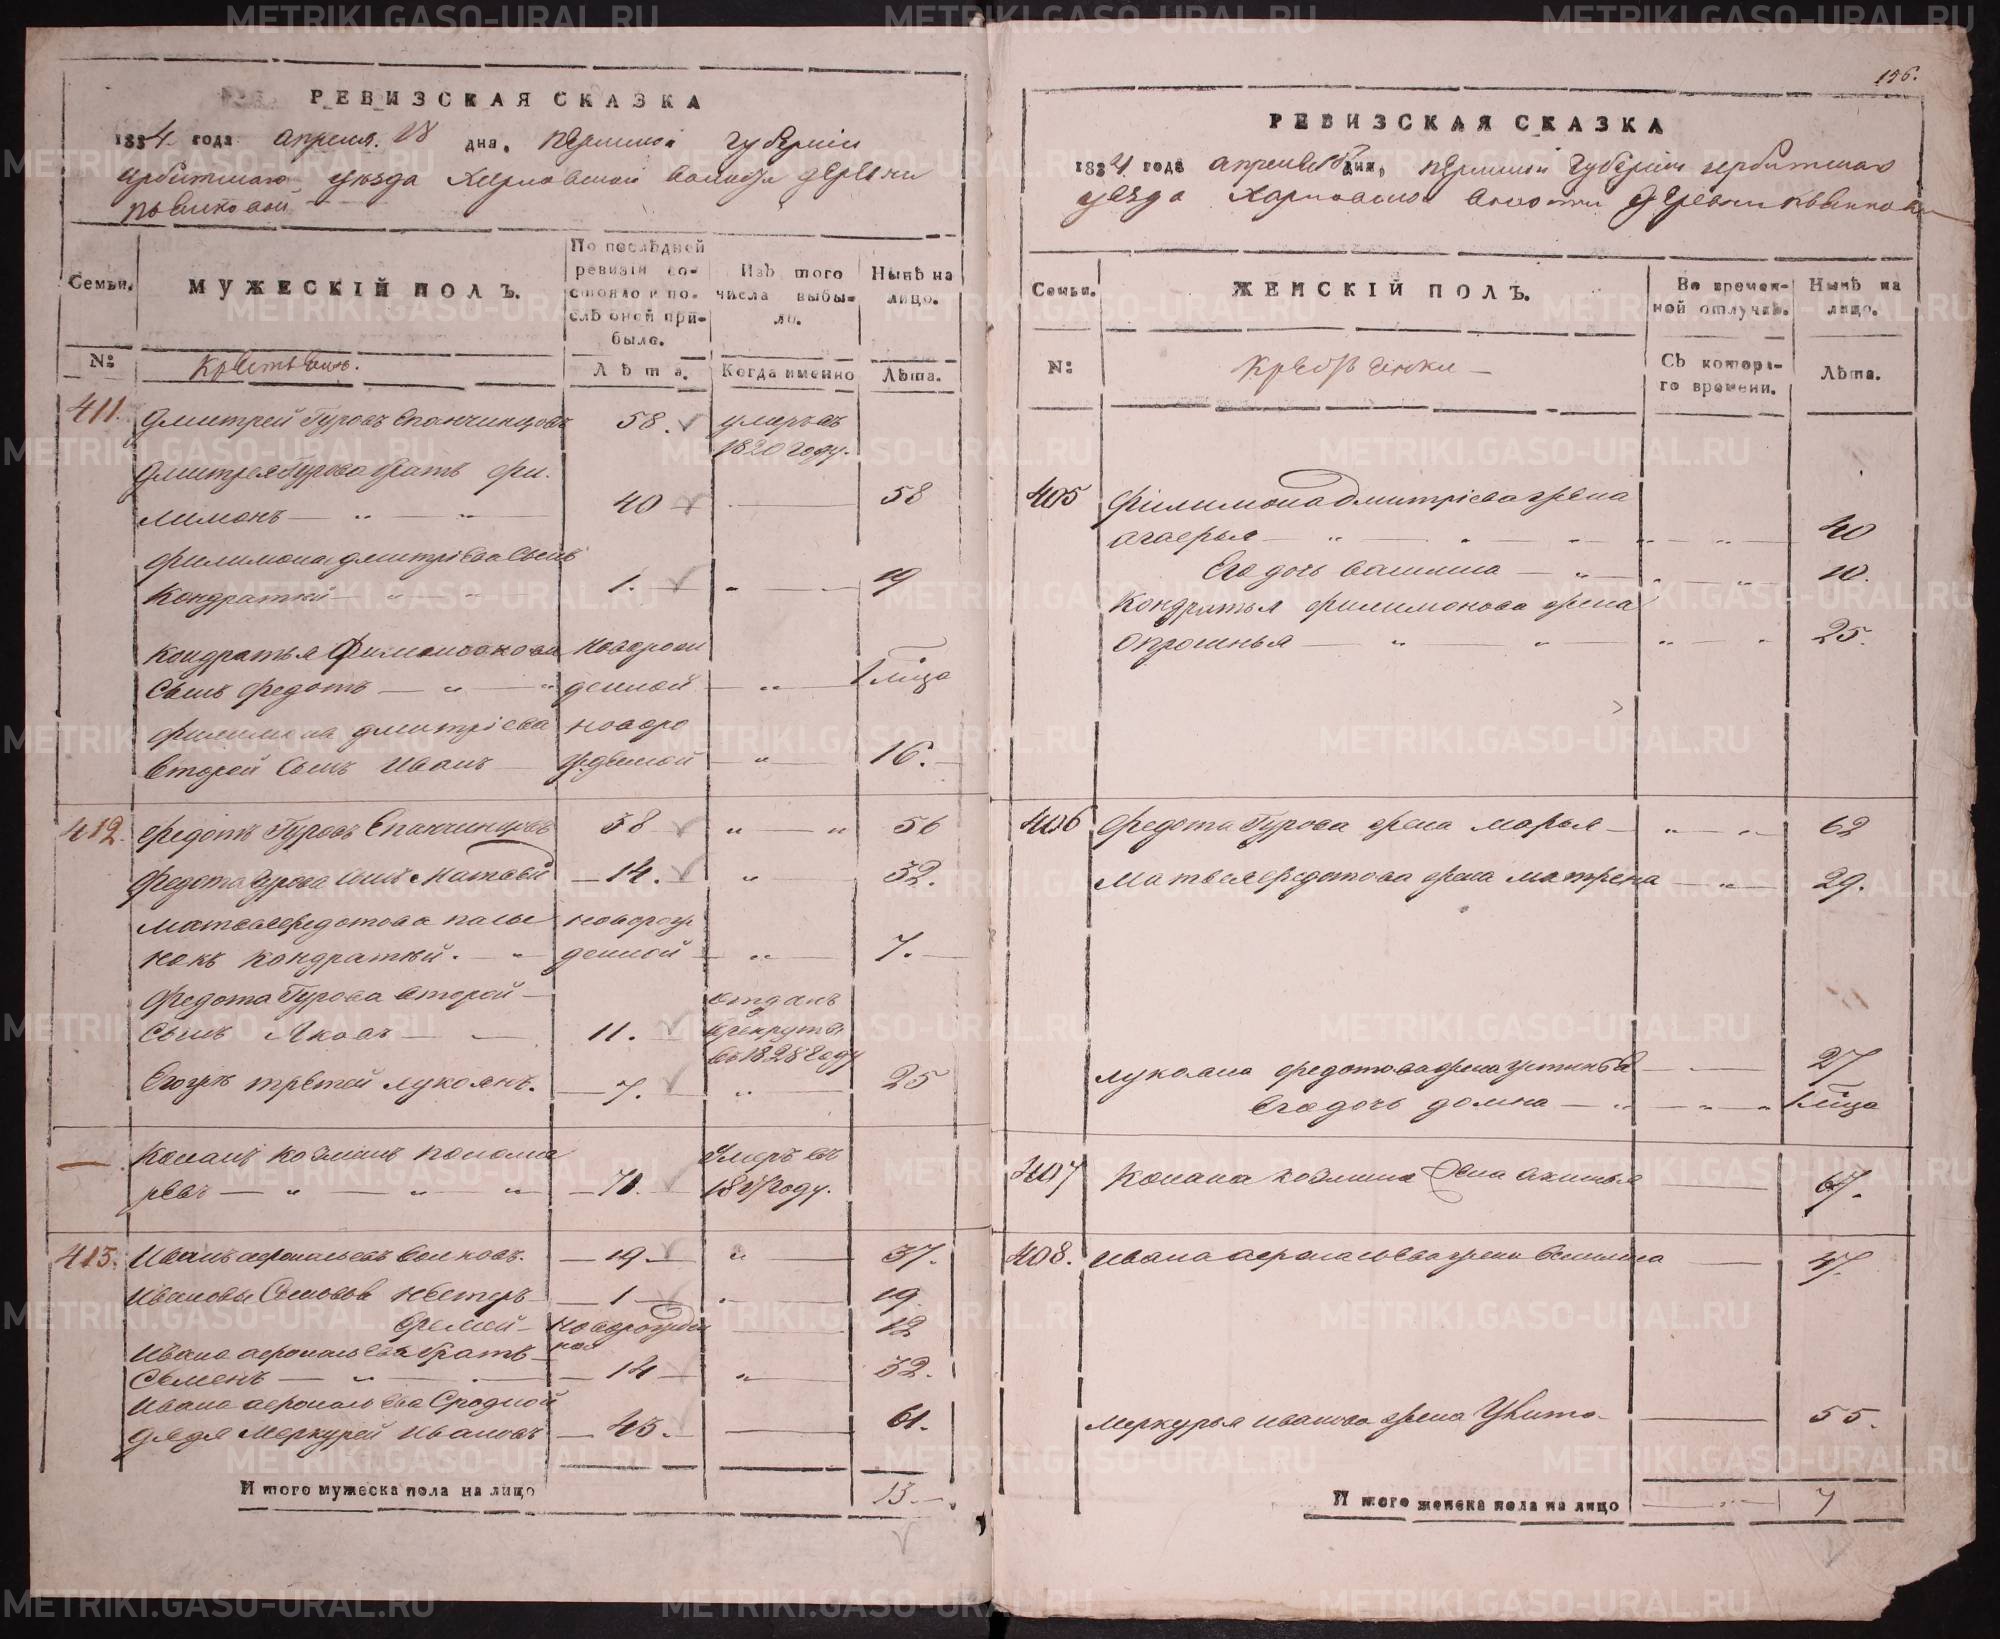 РЕВИЗСКАЯ СКАЗКА
1834 года апреля 18 дна. пермской губернiи
ирбитскаго уезда Харловской волости деревни
Семьи.
МУЖЕСКIЙ ПОЛЪ.
По последней ревизiи состояло и после оной прибыло.
Изъ того числа выбыло.
Ныне на лицо.
N:
Крестьяне.
Лета.
Когда именно
Лета.
411. Дмитрей Гуровъ Епанчинцовъ 58. умеръ въ
1820 году.
Дмитрея Гурова братъ Фи-
лимонъ — „ — „ — 40 — 58
Филимона Дмитрiева сынъ
Кондратей — „ — „ 1. „ — 19
Кондратья Филимонова новорож
сынъ Федотъ — „ — „ денной — „ — 1 лица
Филимона Дмитрiева новоро
второй сынъ Иванъ — жденной — „ — 16.
412. Федотъ Гуровъ Епанчинцовъ 38 „ — „ 56
Федота Гурова сынъ Матвей — 14. „ — 32.
Матвея Федотова новорож
Кондратей. — „ денной — „ — 7. —
Федота Гурова второй — отданъ
сынъ Яковъ — — 11. в рекруты
въ 1828 году
Егожъ третей Лукоянъ. — 7. — „ — 25
— Конанъ Козминъ понома
ревъ — „ — „ — „ — 71. — умеръ въ
году.
413. Иванъ Волковъ. — 19 — „ — 37.
Ивановы сыновья Нестеръ — 1 — . — 19.
— новорожден
ной — 12
Ивана братъ —
Семенъ — „ — — 14 — „ — 32.
Ивана сродной
дядя Меркурей Ивановъ — 43. — — 61.
Итого мужеска пола на лицо 13.
156.
РЕВИЗСКАЯ СКАЗКА
1834 года апреля 18 дна, пермской губернiи ирбитскаго
уезда Харловской волости деревни
Семьи.
ЖЕНСКIЙ ПОЛЪ.
Во временной отлучке.
Ныне на лицо.
N:
Крестьянки —
Съ котораго времени.
Лета.
405 Филимона Дмитрiева жена
Агафья — „ — „ — „ — „ — „ — 40
Его дочь Василиса — „ — „ — „ 10.
Кондратья Филимонова жена
— „ — „ — „ — „ 25.
406 Федота Гурова жена Марья — „ — „ 62
Матвея Федотова жена Матрена — „ — 29.
Лукояна Федотова жена — — 27
Его дочь Домна — „ — „ — „ 1 лица
407 Конана Козмина жена — 67.
408. Ивана жена — 47.
Меркурья Иванова жена — 55.
Итого женска пола на лицо — „ — 7
METRIKI.GASO-URAL.RU